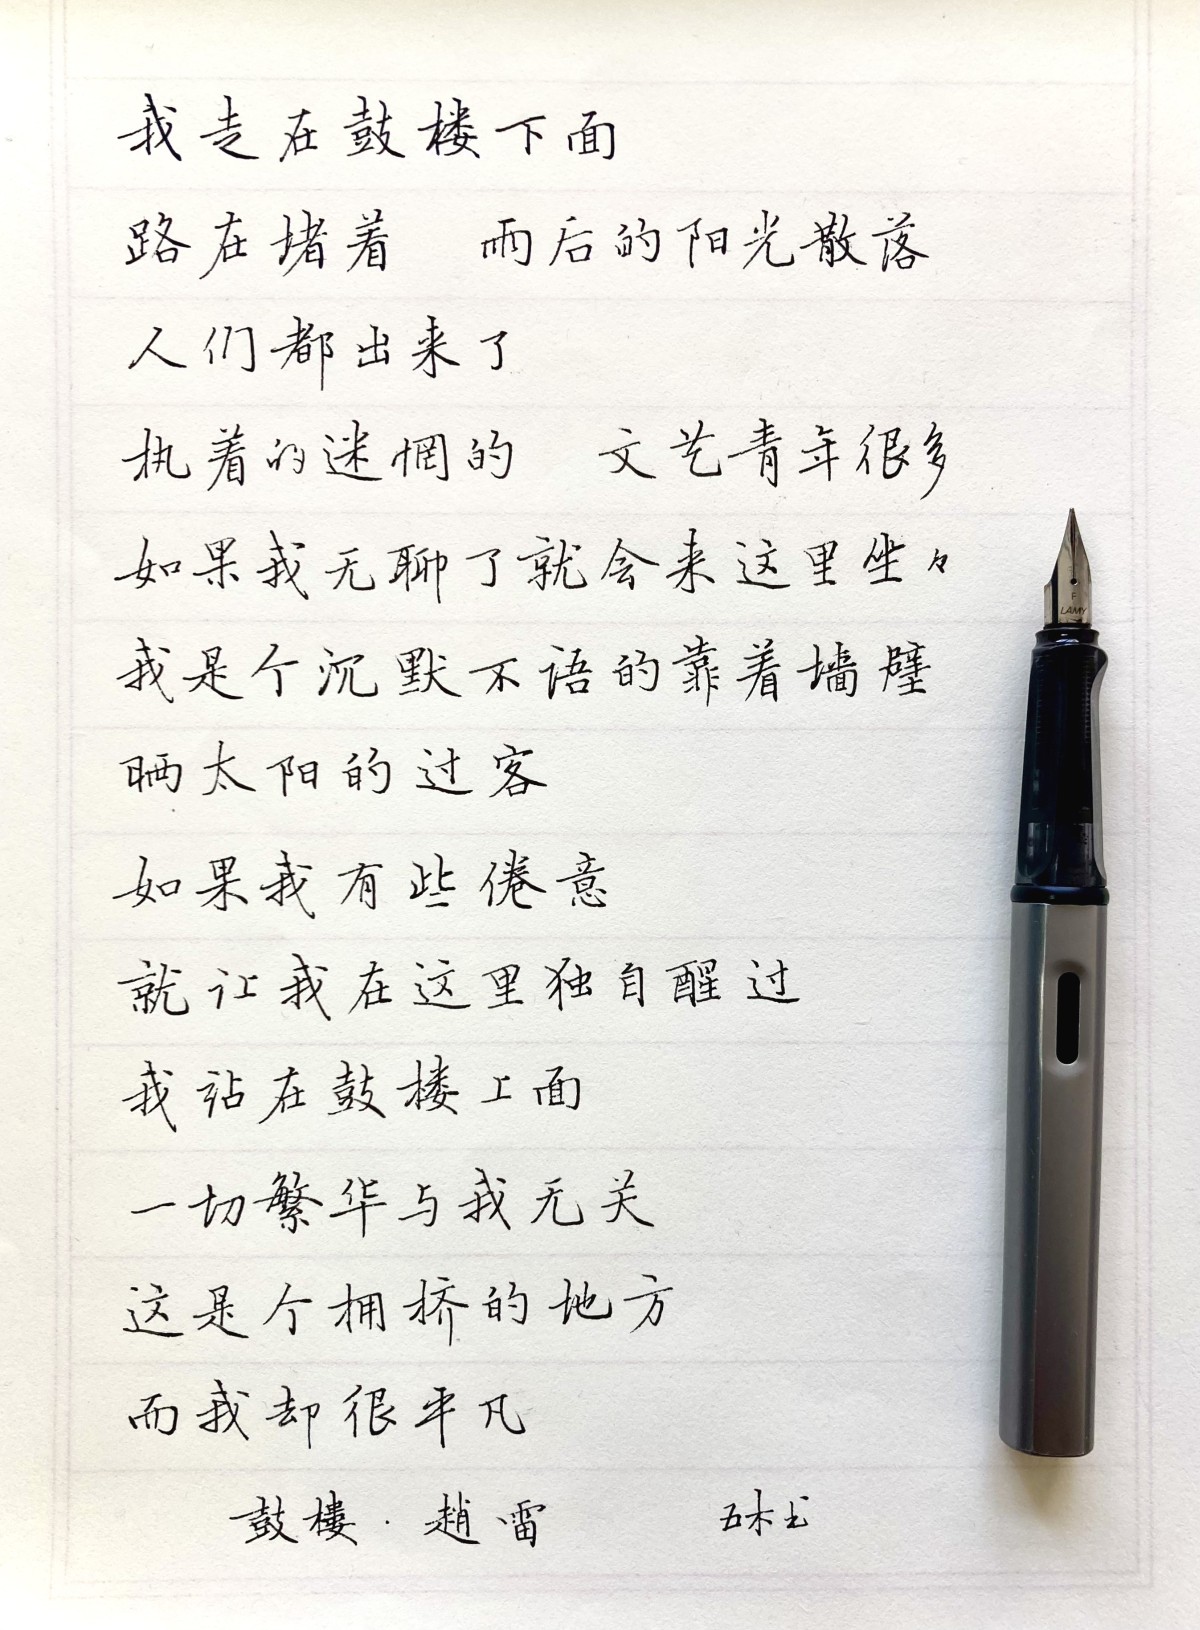 我走在鼓楼下面
路在堵着 雨后的阳光散落
人们都出来了
执着的迷惘的 文艺青年很多
如果我无聊了就会来这里坐々
我是个沉默不语的靠着墙壁
晒太阳的过客
如果我有些倦意
就让我在这里独自醒过
我站在鼓楼上面
一切繁华与我无关
这是个拥挤的地方
而我却很平凡
鼓樓·趙雷 五木书
F
LAMY